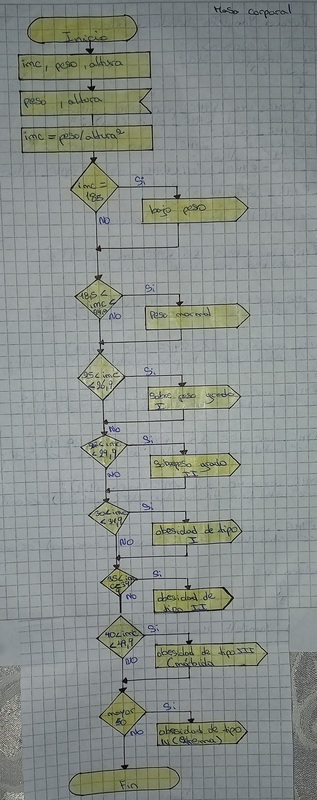 Masa corporal
Inicio
imc, peso, altura
peso, altura
imc = peso/altura²
imc =
18,5
Si
bajo peso
NO
18,5 <
imc <
Si
Peso normal
NO
25 < imc
< 26,9
Si
Sobre peso grado
I
NO
< 29,9
Si
Sobrepeso grado
II
NO
30 < imc
< 34,9
Si
obesidad de tipo
I
NO
Si
obesidad de
tipo II
NO
40 < imc
< 49,9
Si
obesidad de tipo III
(mórbida
NO
mayor
50
Si
obesidad de tipo
IV
NO
Fin